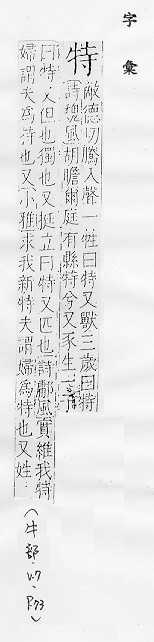 字彙
特 敵德切騰入聲一牲曰特又獸三歲曰特
詩魏風胡瞻爾庭有縣特兮又豕生一
曰特又但也獨也又挺立曰特又匹也詩鄘風實維我特
婦謂夫為特也又小雅求我新特夫謂婦為特也又姓
(牛部·V.7、P.73)